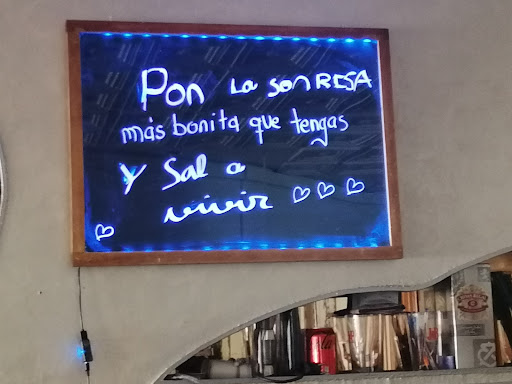 Pon La sonRISA
más bonita que tengas
Y Sal a
vivir